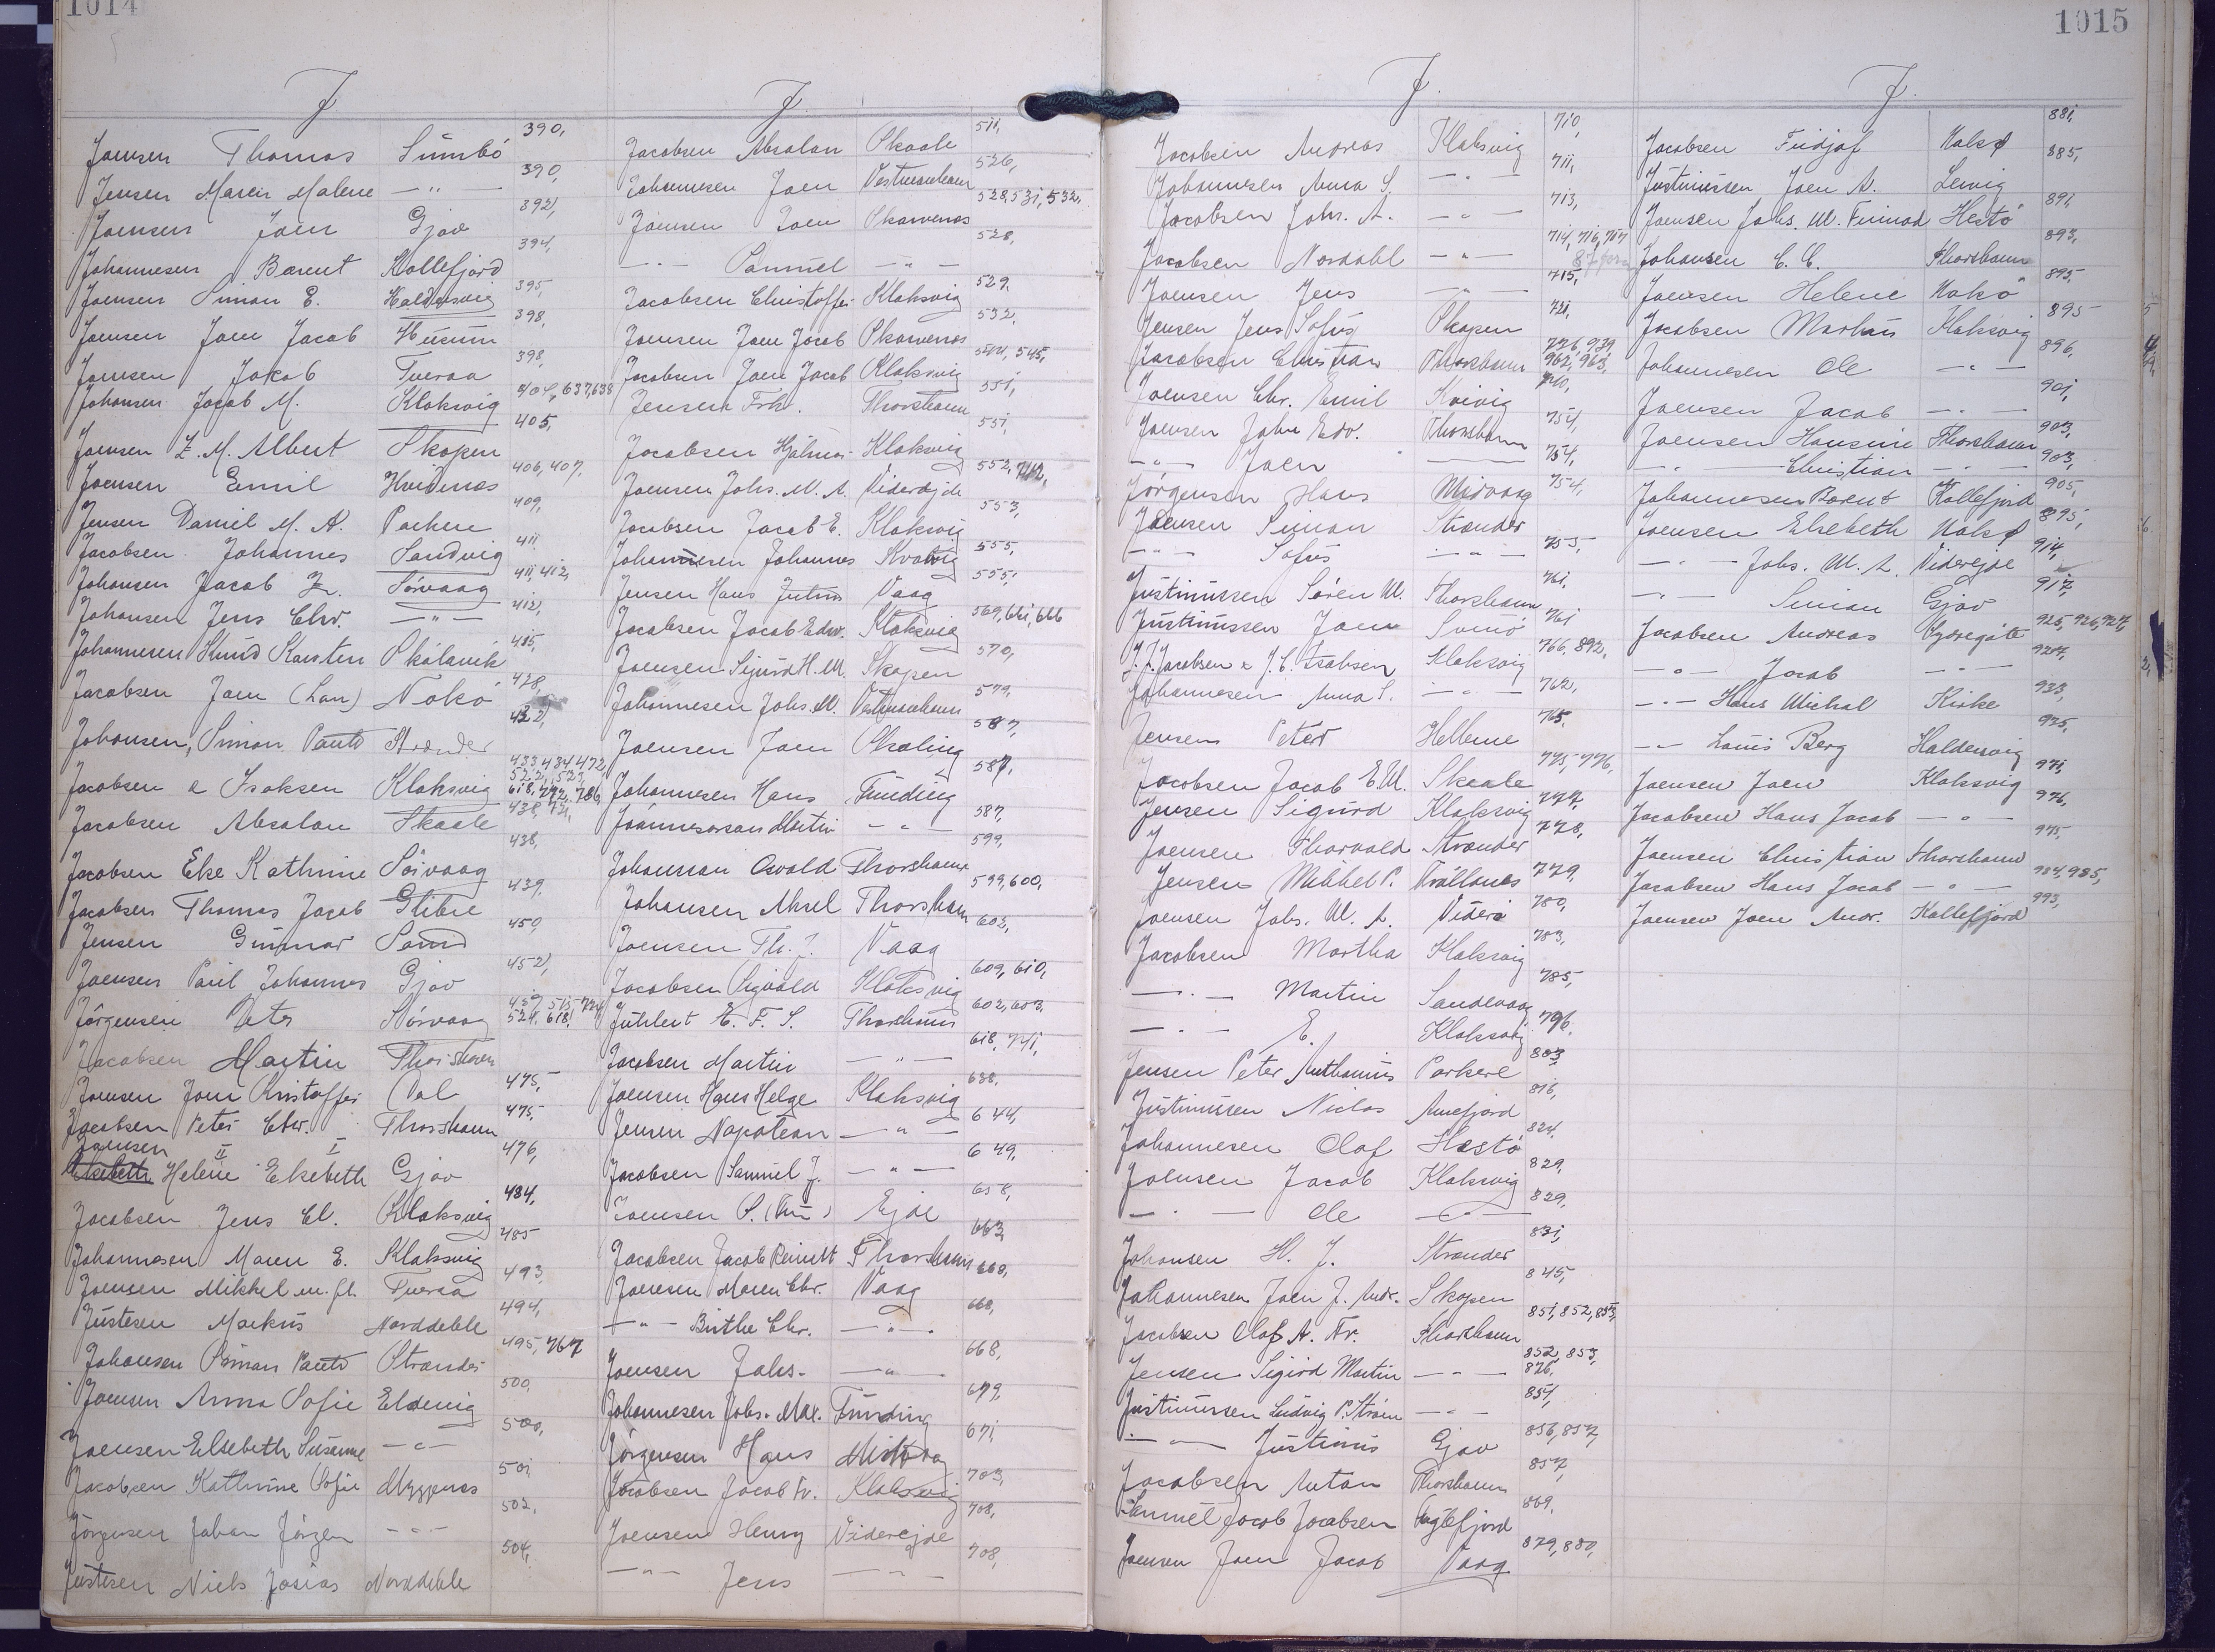 1014
J
Joensen Thomas Sumbö 390,
Jensen Maren Malene — " — 390,
Joensen Joen Gjov 392,
Johannesen Barent Kollefjord 394,
Joensen Simon E. Haldersvig 395,
Joensen Joen Jacob Husum 398,
Joensen Jacob Tveraa 398,
Johansen Jacob M. Klaksvig 404, 637, 638
Joensen Z. M. Albert Skopen 405,
Joensen Emil Hvidenæs 406, 407,
Jensen Daniel M. A. 409,
Jacobsen Johannes Sandvig 411
Johansen Jacob Z. Sörvaag 411, 412,
Johansen Jens Chr. — " — 412,
Johannesen Knud Karsten Skálavik 415,
Jacobsen Joen (Lau) Nolsö 428,
Johansen, Simon Paulo Strænder 432,
Jacobsen & Isaksen Klaksvig 433 434 472, 522, 523, 618, 792, 786,
Jacobsen Absalon Skaale 438, 721,
Jacobsen Else Kathrine Sörvaag 438,
Jacobsen Thomas Jacob Glibre 439,
Jensen Gunnar Sand 450,
Joensen Paul Johannes Gjov 452,
Jörgensen Peter Sörvaag 457, 515, 724 524, 618,
Jacobsen Martin Thorshavn
Joensen Joen Kristoffer Dal 475,
Jacobsen Peter Chr. Thorshavn 475,
Joensen Helene II Elsebeth I Gjov 476,
Jacobsen Jens El. Klaksvig 484,
Johannesen Maren E. Klaksvig 485
Joensen Mikkel m. fl. Tveraa 493,
Justesen Markus Norddeble 494,
Johansen Simon Paulo Strænder 495, 767
Joensen Anna Sofie Eldevig 500,
Joensen Elsebeth Susanne — " — 500,
Jacobsen Kathrine Sofie Myggenæs 501,
Jörgensen Johan Jörgen — " — 502,
Justesen Niels Josias Norddeble 504,
J.
Jacobsen Absalon Skaale 511,
Johannesen Joen Vestmanhavn 526,
Joensen Joen Skarvenæs 528, 531, 532,
— " — Samuel — " — 528,
Jacobsen Christoffer Klaksvig 529,
Joensen Joen Jacob Skarvenæs 532,
Jacobsen Joen Jacob Klaksvig 544, 545,
Jensen Frh. Thorshavn 551,
Jacobsen Hjalmar Klaksvig 551,
Joensen Johs. M. A. Viderejde 552, 762,
Jacobsen Jacob E. Klaksvig 553,
Johannesen Johannes Kvalvig 555,
Jensen Hans Julius Vaag 555,
Jacobsen Jacob Edw. Klaksvig 569, 661, 666
Joensen Sigurd H. M. Skopen 570,
Johannesen Johs. M. Vestmanhavn 579,
Joensen Joen Skæling 587,
Johannesen Hans Funding 587,
Jóannesarson Martin — " — 587,
Johansson Osvald Thorshavn 599,
Johansen Aksel Thorshavn 599, 600,
Joensen Th. J. Vaag 602,
Jacobsen Sigvald Klaksvig 609, 610,
Juhlert E. F. S. Thorshavn 602, 603,
Jacobsen Martin — " — 618, 741,
Joensen Hans Helge Klaksvig 638,
Jensen Napoleon — " — 644,
Jacobsen Samuel J. — " — 649,
Joensen S. Ejde 658,
Jacobsen Jacob Reinett Thorshavn 663,
Joensen Maren Chr. Vaag 668,
— " — Birthe Chr. — " — 668,
Joensen Johs. — " — 668,
Johannesen Johs. Max. Funding 679,
Jörgensen Hans Midvaag 671,
Jacobsen Jacob Fr. Klaksvig 703,
Joensen Henry Viderejde 708,
— " — Jens — " — 708,
1015
J.
Jacobsen Andreas Klaksvig 710,
Johannesen Anna S. — " — 711,
Jacobsen Johs. A. — " — 713,
Jacobsen Nordahl — " — 714, 716, 717
Joensen Jens — " — 715,
Jensen Jens Sofus Skopen 721,
Jacobsen Christian Thorshavn 726, 939, 962, 963,
Joensen Chr. Emil Kvivig 740,
Joensen John Edv. Thorshavn 754,
— " — Joen — 754,
Jörgensen Hans Midvaag 754,
Joensen Simon Strænder
— " — Sofus — " — 755,
Justinussen Sören M. Thorshavn 761,
Justinussen Joen Svinö 761
J. J. Jacobsen & J. C. Isaksen Klaksvig 766, 892,
Johannesen Anna S. — " — 762,
Jensen Peter Hellerne 765,
Jacobsen Jacob E. M. Skaale 775, 776,
Jensen Sigurd Klaksvig 777,
Joensen Thorvald Strænder 778,
Jensen Mikkel P. Trøllanes 779,
Joensen Johs. M. A. Viderø 780,
Jacobsen Martha Klaksvig 783,
— " — Martin Sandevaag 785,
— " — E. Klaksvig 796,
Jensen Peter Anthonius Porkere 803
Justinussen Niclas Arnefjord 816,
Johannesen Olaf Hestö 824,
Joensen Jacob Klaksvig 829,
— " — Ole — " — 829,
Johansen H. J. Strænder 831,
Johannesen Joen J. Andr. Skopen 845,
Jacobsen Olaf A. Fr. Thorshavn 851, 852, 853,
Jensen Sigurd Martin — " — 852, 853, 876,
Justinussen Ludvig P. Ström — " — 854,
— " — Justinus Gjov 856, 857,
Jacobsen Anton Thorshavn 857,
Samuel Jacob Jacobsen Fuglefjord 869,
Joensen Joen Jacob Vaag 879, 880,
J.
Jacobsen Fridjof Nolsø 881,
Justinussen Joen A. Lervig 885,
Joensen Johs. M. Finnod Hestö 891,
Johansen C. C. Thorshavn 893,
Joensen Helene Nolsö 895,
Jacobsen Markus Klaksvig 895
Johannesen Ole — " — 896,
Joensen Jacob — " — 901,
Joensen Hansine Thorshavn 903,
— " — Christian — " — 903,
Johannesen Barent Kollefjord 905,
Joensen Elsebeth Nolsø 895,
— " — Johs. M. A. Viderejde 914,
— " — Simon Gjov 917,
Jacobsen Andreas Sydregöte 925, 926, 927,
— " — Jacob — " — 927,
— " — Hans Michal Kirke 933,
— " — Louis Berg Haldersvig 935,
Joensen Joen Klaksvig 971,
Jacobsen Hans Jacob — " — 976,
Joensen Christian Thorshavn 975,
Jacobsen Hans Jacob — " — 984, 985,
Joensen Joen Andr. Kollefjord 993,